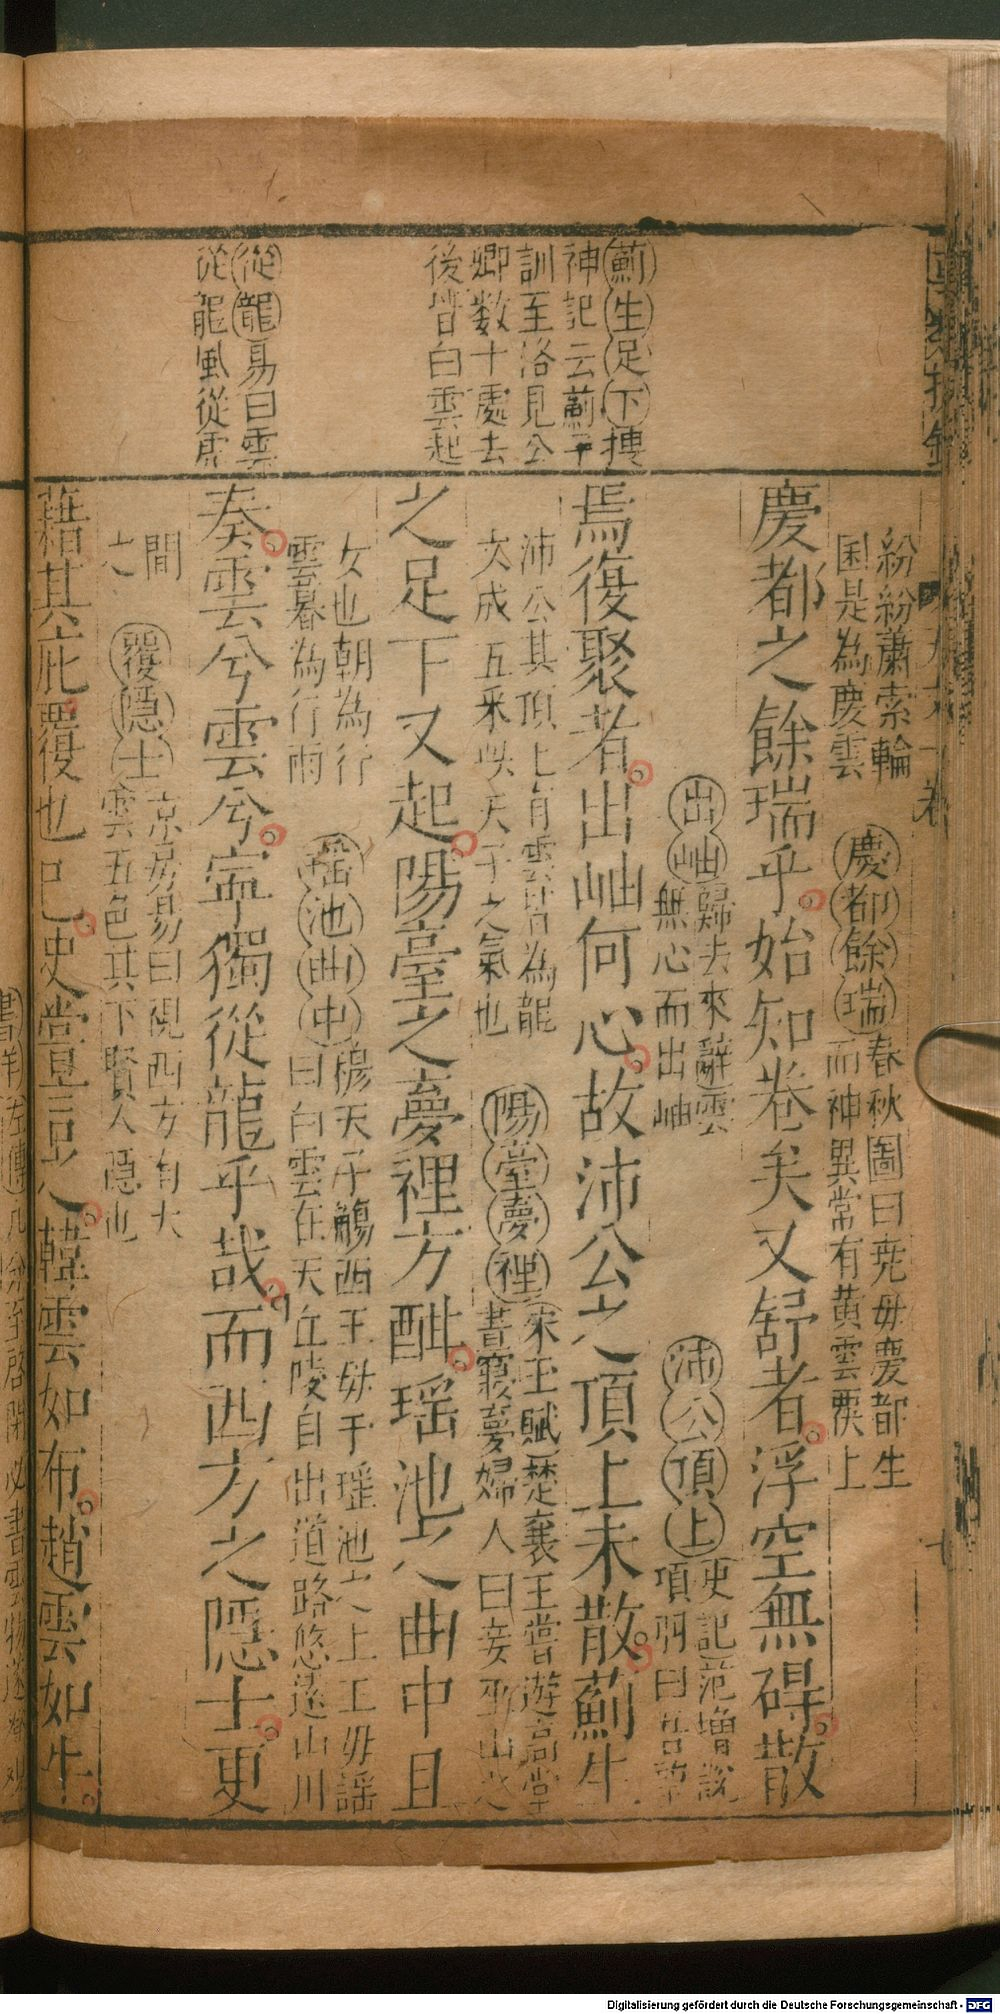 薊生足下摟
神記云薊子
訓至洛見公
卿数十處去
後皆白雲起
從龍易曰雲
從龍風從虎
紛紛蕭索輪
囷是為慶雲
慶都餘瑞
春秋圖曰尭毋慶都生
而神異常有黄雲覆上
慶都之餘瑞乎始知卷矣又舒者浮空無碍散
出岫
歸去來辭雲
無心而出岫
沛公頂上
史記范增說
項羽曰吾
焉復聚者出岫何心故沛公之頂上未散薊生
沛公其頂上有雲皆為龍
文成五采此天子之氣也
陽臺夢裡
宋玉賦楚襄王嘗遊高堂
晝寢夢婦人曰妾巫山之
之足下又起陽臺之夢裡方酣瑶池之曲中且
女也朝為行
雲暮為行雨
瑶池曲中
穆天子觴西王毋于瑶池之上王毋謡
曰白雲在天丘陵自出道路悠遠山川
奏雲兮雲兮寧獨從龍乎哉而西方之隱士更
間
之
覆隱士
京房易曰視西方有大
雲五色其下賢人隱也
藉其庇覆也巳史嘗言之韓雲如布趙雲如牛
書祥左傳凡分至啓閉必書雲物
Digitalisierung gefördert durch die Deutsche Forschungsgemeinschaft - DFG